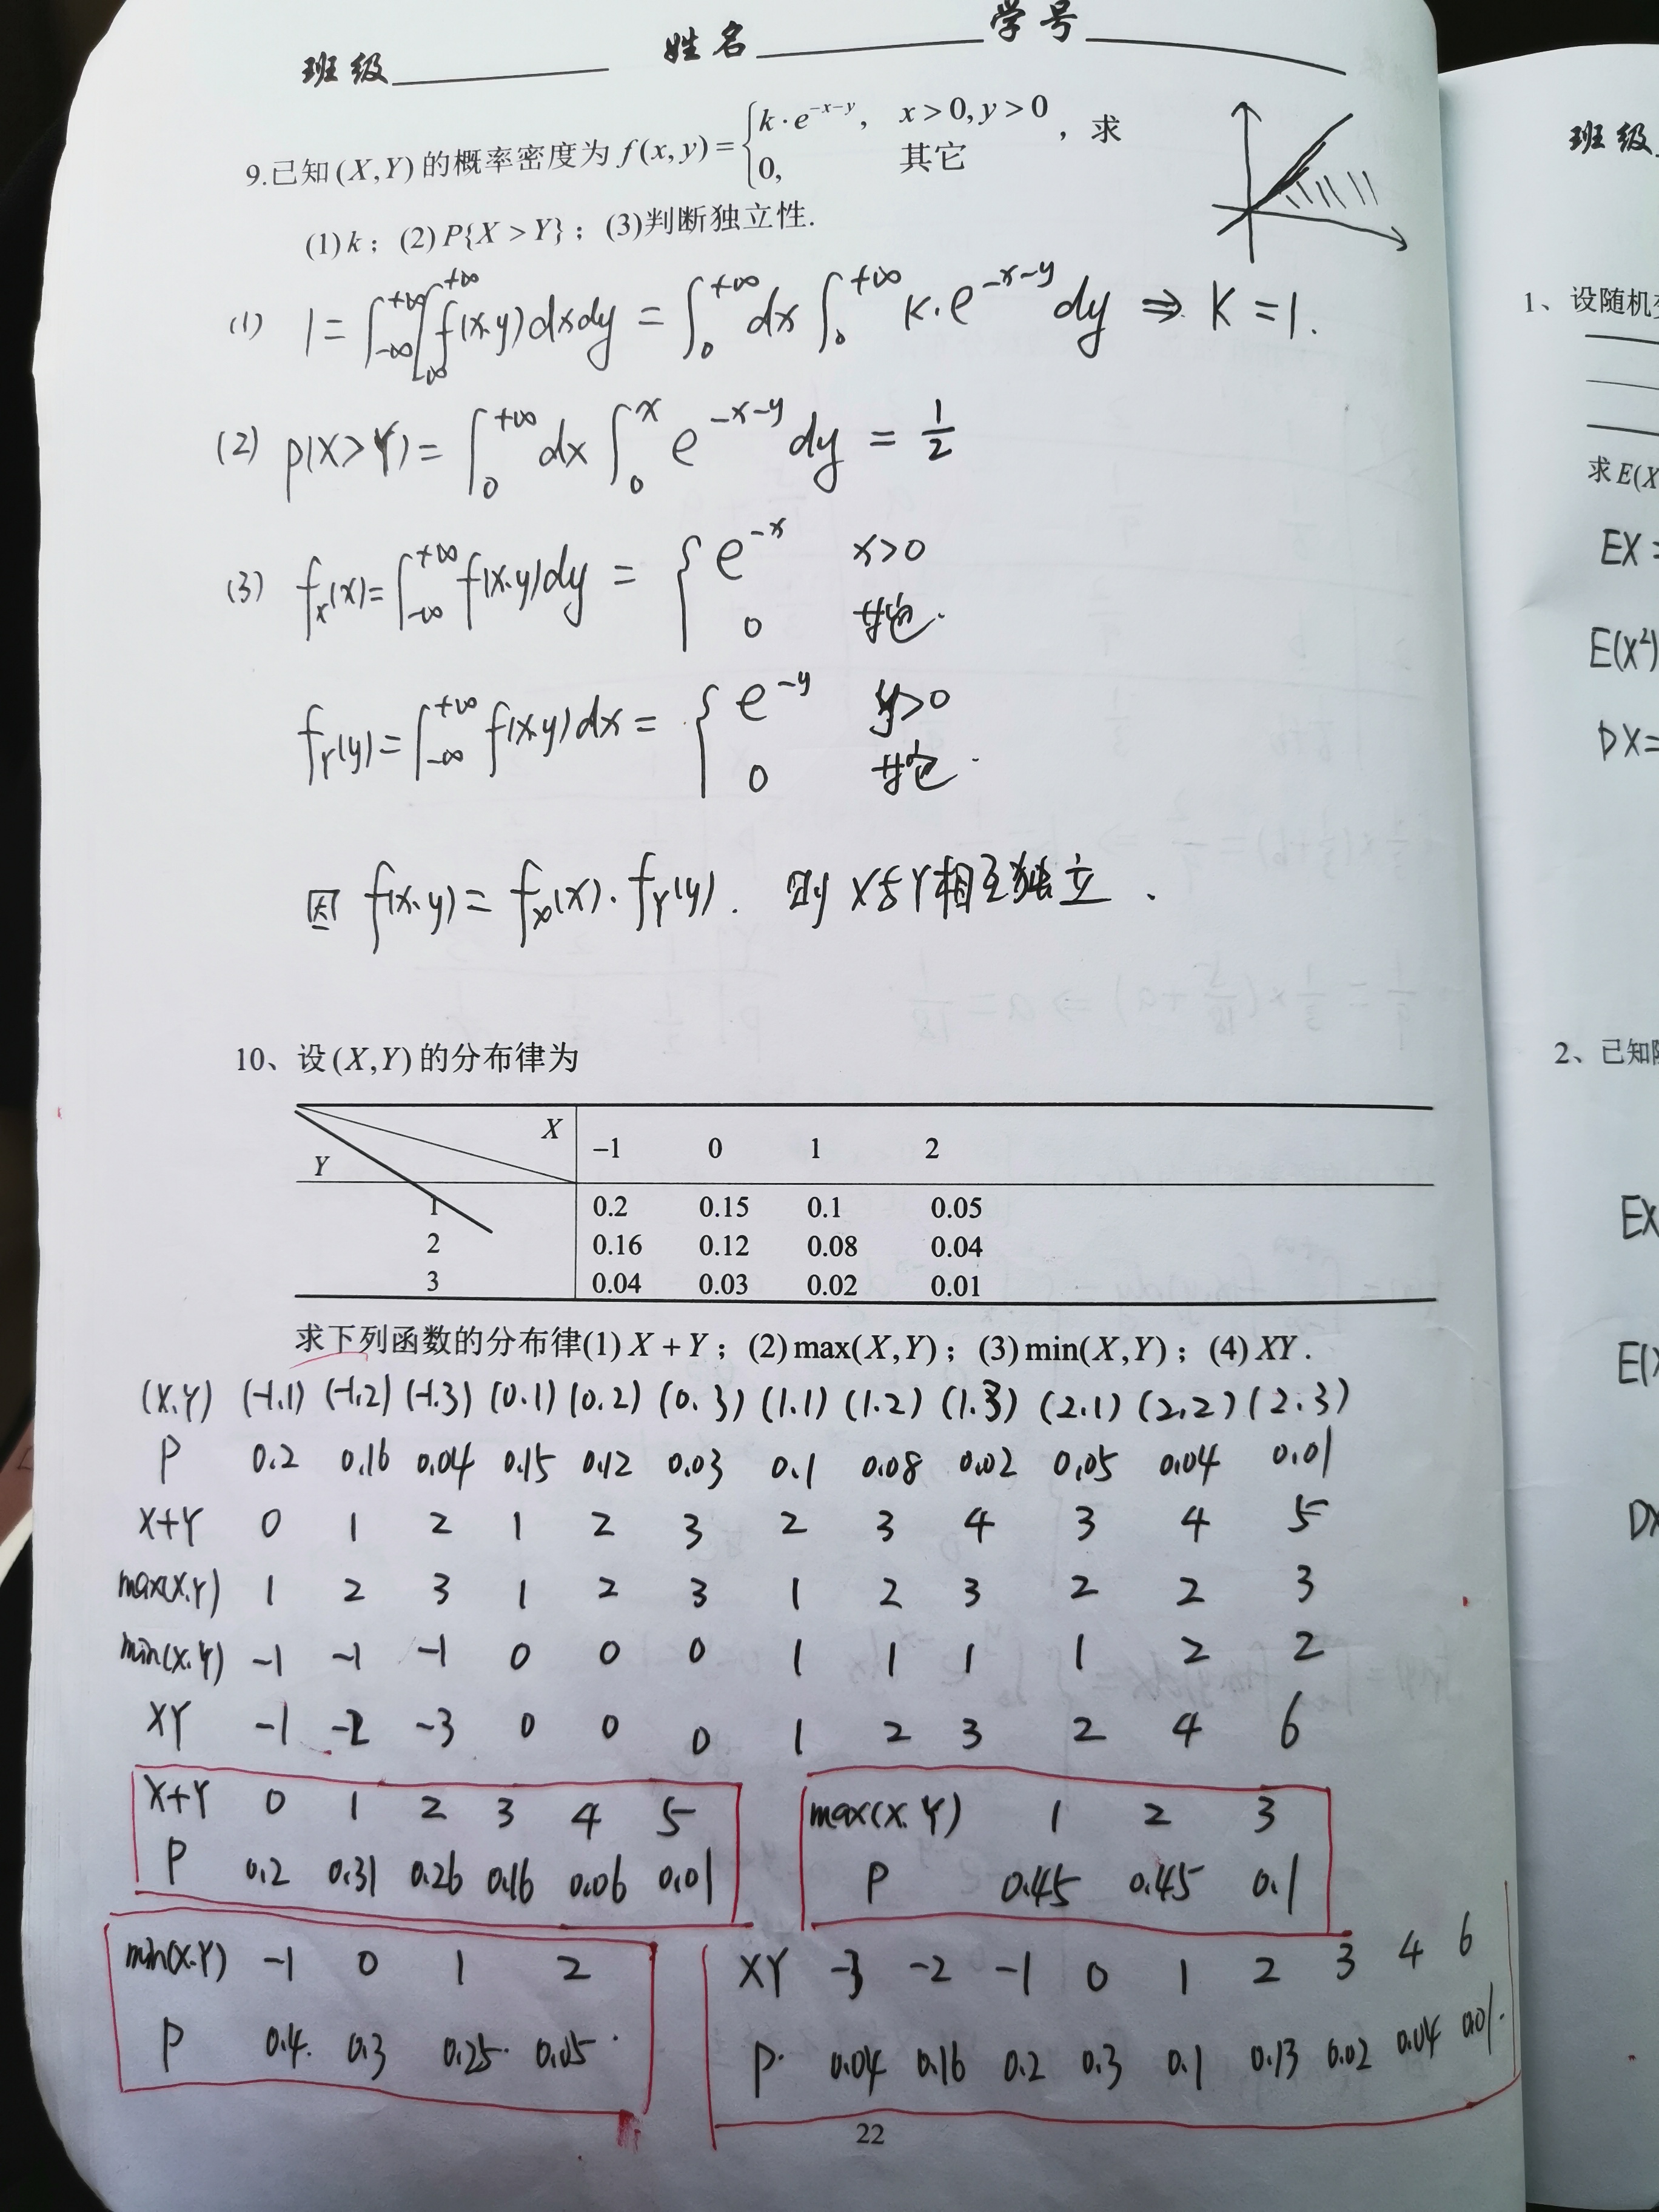 班级 姓名 学号
9.已知(X,Y)的概率密度为f(x,y)={k·e^{-x-y}, x>0,y>0 0, 其它 ，求
(1)k；(2)P{X>Y}；(3)判断独立性.
(1) 1=∫_{-∞}^{+∞}∫_{-∞}^{+∞}f(x.y)dxdy=∫_0^{+∞}dx∫_0^{+∞}K.e^{-x-y}dy ⇒ K=1.
(2) P(X>Y)=∫_0^{+∞}dx∫_0^x e^{-x-y}dy=1/2
(3) f_X(x)=∫_{-∞}^{+∞}f(x.y)dy={e^{-x} x>0 0 其它.
f_Y(y)=∫_{-∞}^{+∞}f(x.y)dx={e^{-y} y>0 0 其它.
因 f(x.y)=f_X(x).f_Y(y). 则X与Y相互独立.
10、设(X,Y)的分布律为
X -1 0 1 2
Y
1 0.2 0.15 0.1 0.05
2 0.16 0.12 0.08 0.04
3 0.04 0.03 0.02 0.01
求下列函数的分布律(1)X+Y；(2)max(X,Y)；(3)min(X,Y)；(4)XY.
(X.Y) (-1.1) (-1.2) (-1.3) (0.1) (0.2) (0.3) (1.1) (1.2) (1.3) (2.1) (2.2) (2.3)
P 0.2 0.16 0.04 0.15 0.12 0.03 0.1 0.08 0.02 0.05 0.04 0.01
X+Y 0 1 2 1 2 3 2 3 4 3 4 5
max(X.Y) 1 2 3 1 2 3 1 2 3 2 2 3
min(X.Y) -1 -1 -1 0 0 0 1 1 1 1 2 2
XY -1 -2 -3 0 0 0 1 2 3 2 4 6
X+Y 0 1 2 3 4 5
P 0.2 0.31 0.26 0.16 0.06 0.01
max(X.Y) 1 2 3
P 0.45 0.45 0.1
min(X.Y) -1 0 1 2
P 0.4. 0.3 0.25. 0.05.
XY -3 -2 -1 0 1 2 3 4 6
P. 0.04 0.16 0.2 0.3 0.1 0.13 0.02 0.04 0.01.
22
班级
1、设随机
求E(X
EX=
E(X²)
DX=
2、已知
EX
E(
DX